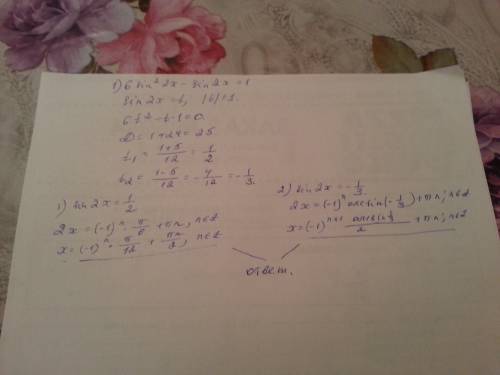 1) 6 sin² 2x - sin 2x = 1
sin 2x = t, |t| ≤ 1.
6t² - t - 1 = 0.
D = 1 + 24 = 25
t₁ = (1+5)/12 = 1/2
t₂ = (1-5)/12 = -4/12 = -1/3.
1) sin 2x = 1/2
2x = (-1)ⁿ · π/6 + πn, n∈Z
x = (-1)ⁿ · π/12 + πn/2, n∈Z
2) sin 2x = -1/3
2x = (-1)ⁿ arcsin(-1/3) + πn; n∈Z
x = (-1)ⁿ⁺¹ arcsin 1/3 / 2 + πn; n∈Z
ответ.